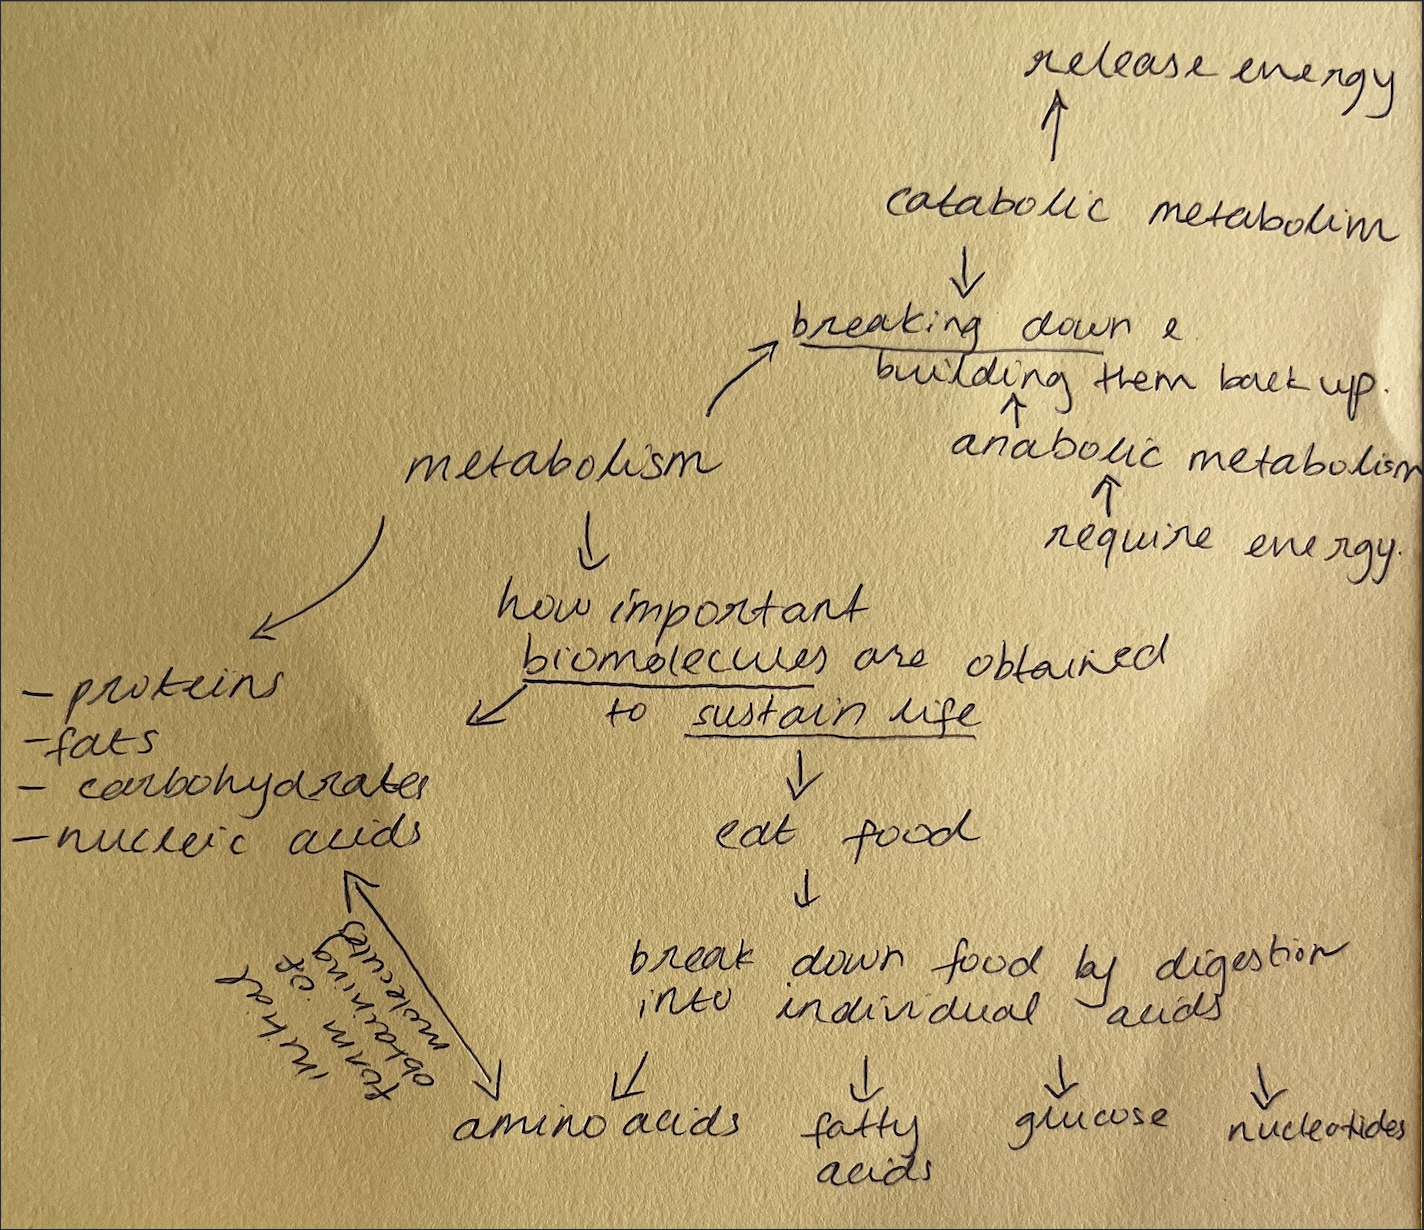 release energy
catabolic metabolim
breaking down &
building them back up.
anabolic metabolism
require energy.
metabolism
how important
biomolecules are obtained
to sustain life
- proteins
- fats
- carbohydrates
- nucleic acids
eat food
break down food by digestion
into individual acids
initial
form of
obtaining
molecules
amino acids
fatty
acids
glucose
nucleotides